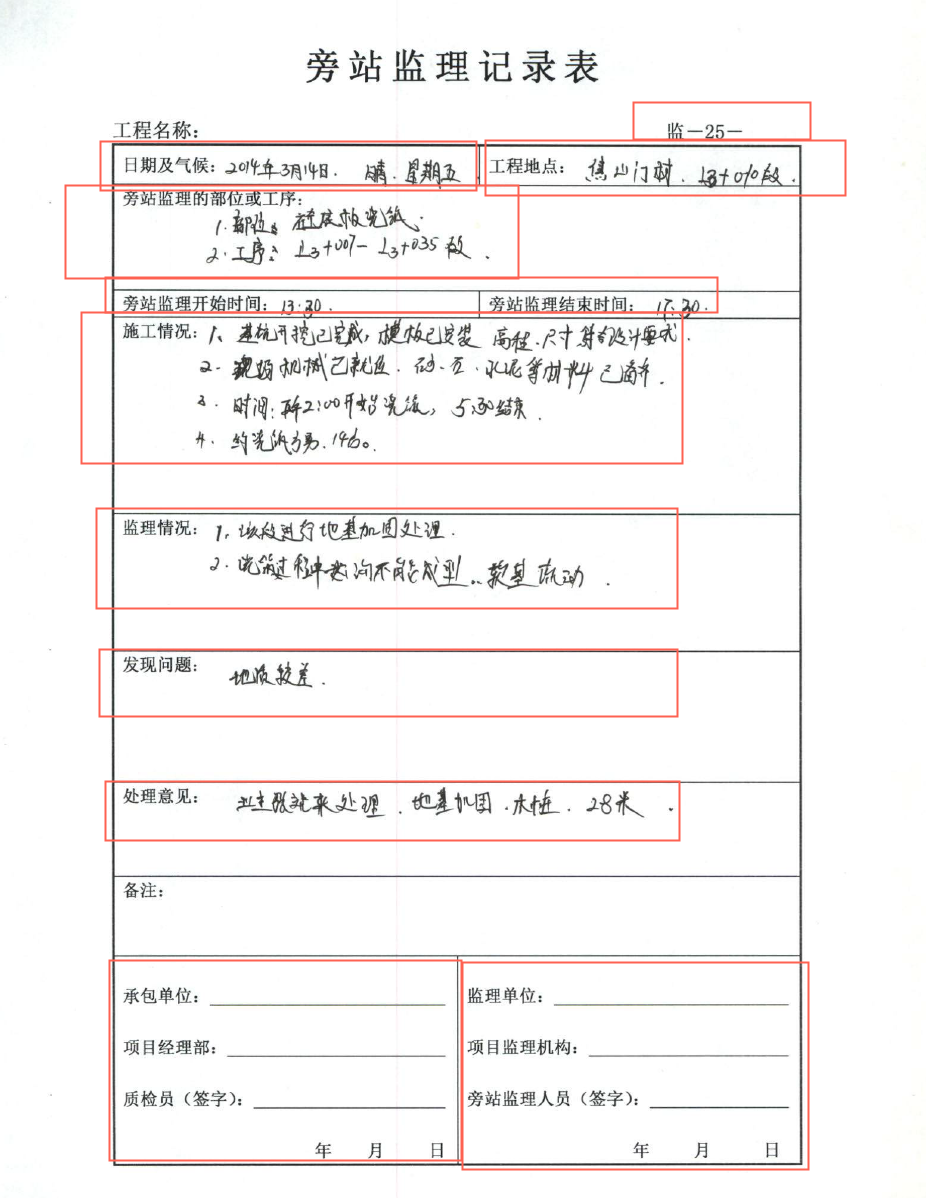 旁站监理记录表
工程名称：
监－25－
日期及气候：2014年3月14日. 晴. 星期五
工程地点： 门 . L3+010段.
旁站监理的部位或工序：
1. 部位: 底板浇筑.
2. 工序: L3+007-L3+035段.
旁站监理开始时间：13:30.
旁站监理结束时间：17:30.
施工情况：1. 基坑开挖已完成, 模板已安装 高程.尺寸符合设计要求.
2. 现场机械已就位. 砂.石.水泥等材料已备齐.
3. 时间: 2:00开始浇筑, 5:30结束.
4. 约浇筑方
监理情况：1. 该段进行地基加固处理.
2. 浇筑过程中 沟不能成型.. 软基流动.
发现问题：地质较差.
处理意见：业主 来处理. 地基加固.木桩. 28米.
备注：
承包单位：
监理单位：
项目经理部：
项目监理机构：
质检员（签字）：
旁站监理人员（签字）：
年 月 日
年 月 日